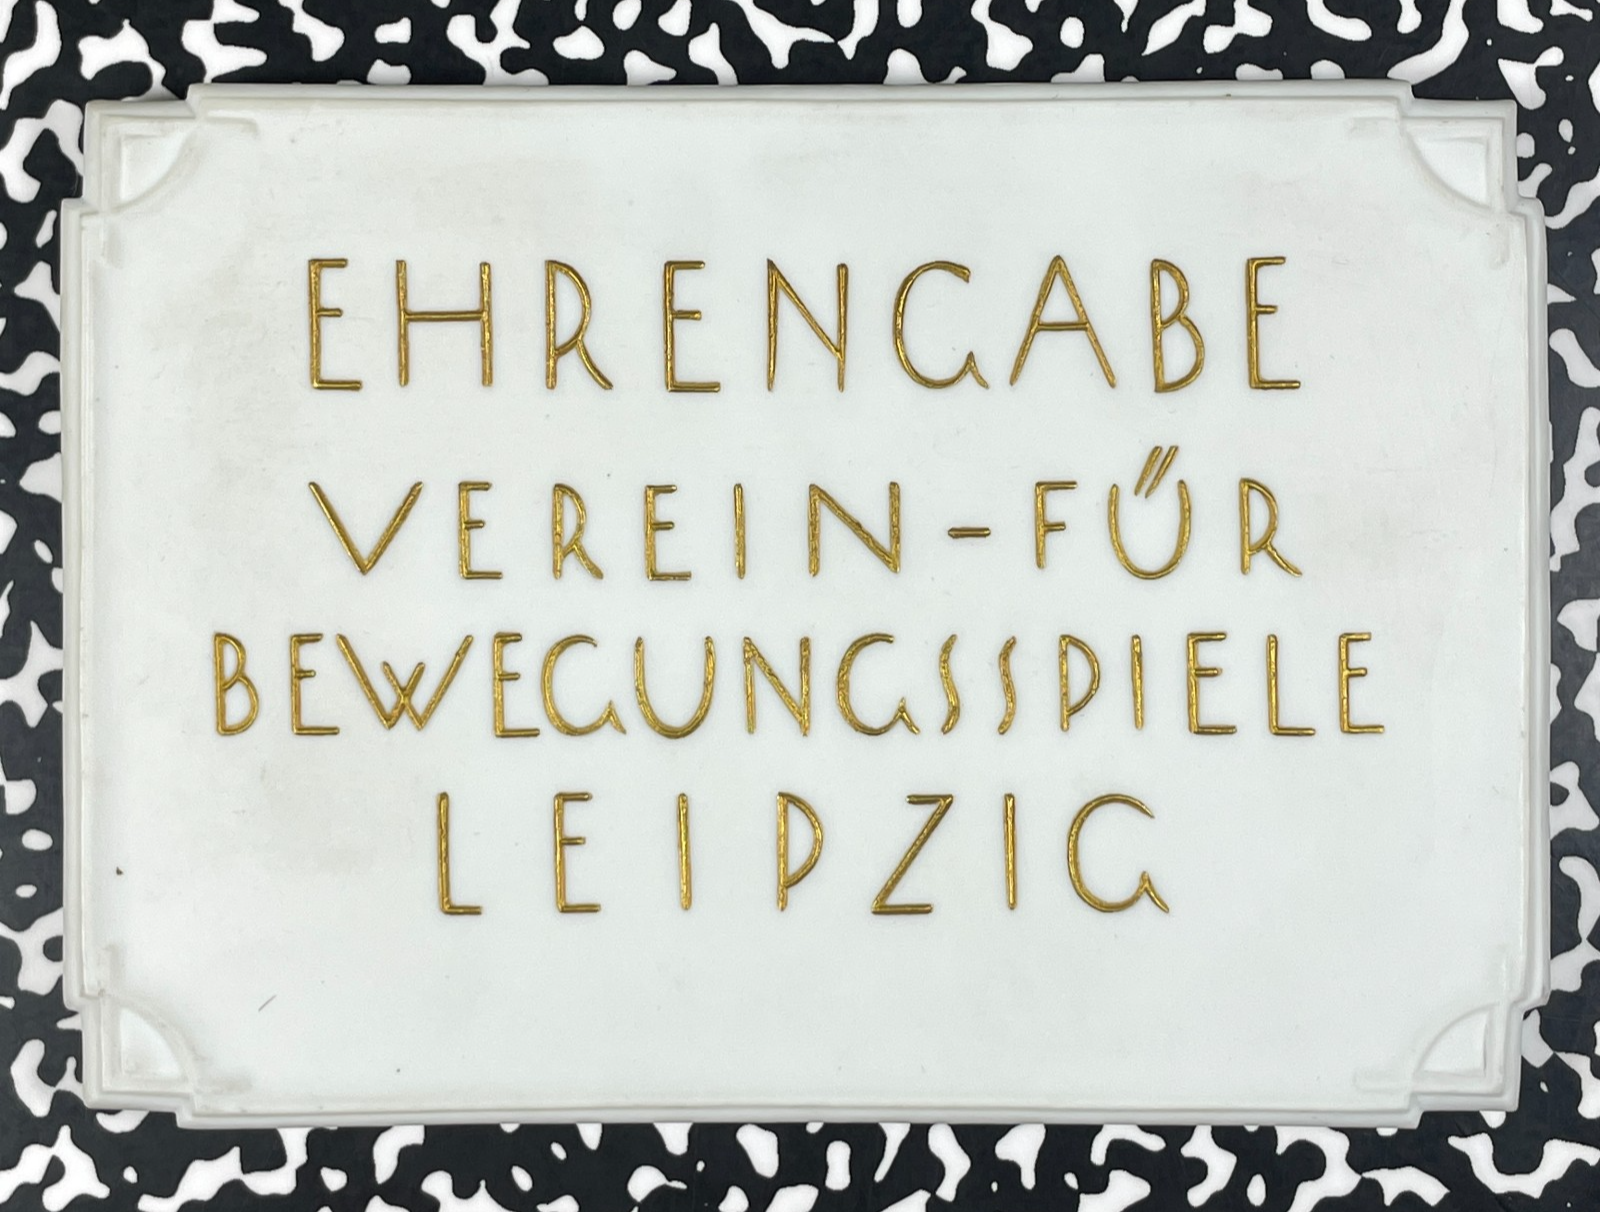 EHRENGABE
VEREIN-FÜR
BEWEGUNGSSPIELE
LEIPZIG